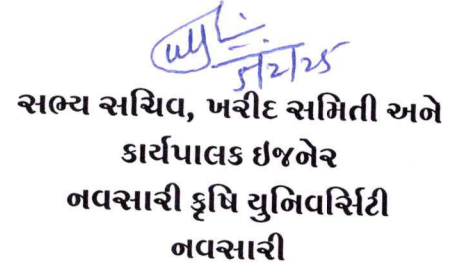 5/2/25
સભ્ય સચિવ, ખરીદ સમિતી અને
કાર્યપાલક ઇજનેર
નવસારી કૃષિ યુનિવર્સિટી
નવસારી